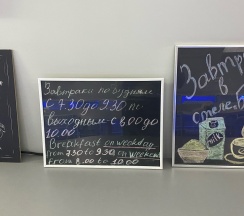 Завтраки по будням
с 7.30 до 9.30 по
выходным с 8.00 до
10.00
Breakfast on weekday
from 7.30 to 9.30, on weekend
from 8.00 to 10.00
Завтр
в
стиле
milk